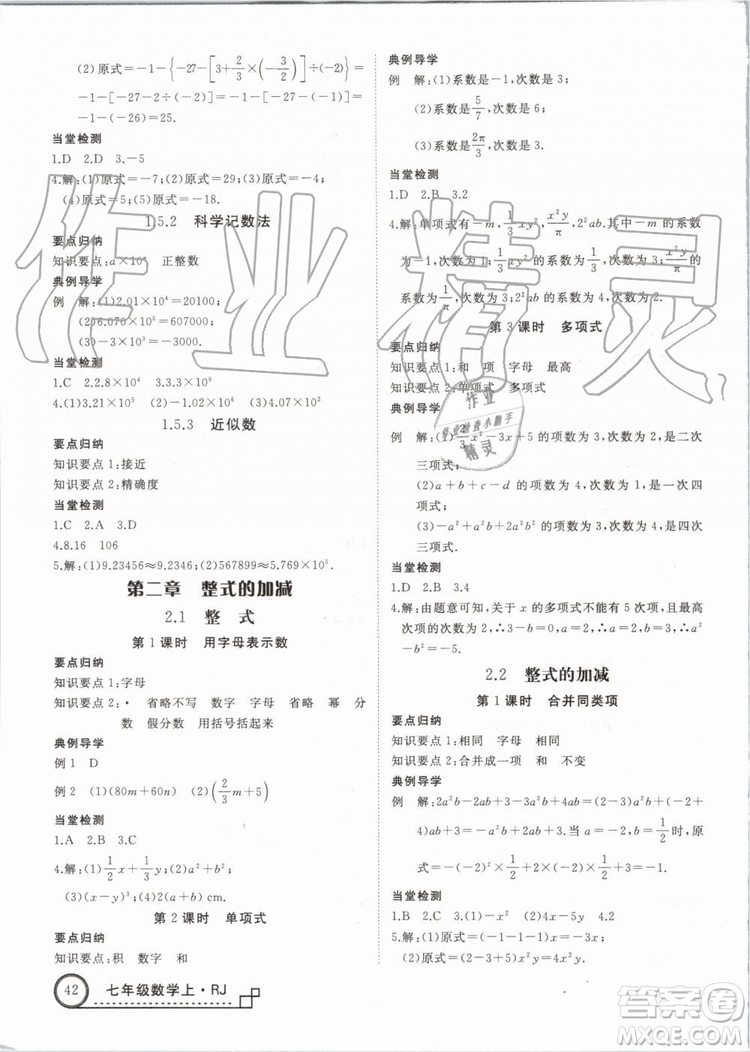 (2)原式=-1-{-27-[3+2/3×(-3/2)]÷(-2)}=
-1-[-27-2÷(-2)]=-1-[-27-(-1)]=
-1-(-26)=25.
当堂检测
1.D 2.D 3.-5
4.解:(1)原式=-7;(2)原式=29;(3)原式=-1;
(4)原式=5;(5)原式=-18.
1.5.2 科学记数法
要点归纳
知识要点:a×10ⁿ 正整数
典例导学
例 解:(1)2.01×10⁴=20100;
(2)6.070×10⁵=607000;
(3)-3×10³=-3000.
当堂检测
1.C 2.2.8×10⁴ 3.3.3×10⁹
4.(1)3.21×10⁵;(2)-1.21×10⁷.
1.5.3 近似数
要点归纳
知识要点1:接近
知识要点2:精确度
当堂检测
1.C 2.A 3.D
4.8.16 106
5.解:(1)9.23456≈9.2346;(2)567899≈5.769×10⁵.
第二章 整式的加减
2.1 整 式
第1课时 用字母表示数
要点归纳
知识要点1:字母
知识要点2:· 省略不写 数字 字母 省略 幂 分
数 假分数 用括号括起来
典例导学
例1 D
例2 (1)(80m+60n) (2)(2/3 m+5)
当堂检测
1.A 2.B 3.C
4.解:(1)1/2 x+1/3 y;(2)a²+b²;
(3)(x-y)³;(4)2(a+b) cm.
第2课时 单项式
要点归纳
知识要点:积 数字 和
42 七年级数学上·RJ
典例导学
例 解:(1)系数是-1,次数是3;
(2)系数是5/7,次数是6;
(3)系数是2π/3,次数是3.
当堂检测
1.D 2.B 3.2
4.解:单项式有-m,1/3 xy²,x²y/π,2²ab.系数
第3课时 多项式
要点归纳
知识要点1:和 项 字母 最高
知识要点2:单项式 多项式
典例导学
三项式;
(2)a+b+c-d的项数为4,次数为1,是一次四
项式;
(3)-a²+a²b+2a²b²的项数为3,次数为4,是四次
三项式.
当堂检测
1.D 2.B 3.4
4.解:由题意可知,关于x的多项式不能有5次项,且最高
次项的次数为4次,所以a+2=0,3-b=0,-2+
5=3≠0,所以a=-2,b=3.
2.2 整式的加减
第1课时 合并同类项
要点归纳
知识要点1:相同 字母 相同
知识要点2:合并成一项 和 不变
典例导学
例 解:2a²b-2ab+3-3a²b+4ab=(2-3)a²b+(-2
+4)ab+3=-a²b+2ab+3.当a=-2,b=1/2时,原
式=-2-2+3=-1.
当堂检测
1.B 2.C 3.(1)-x² (2)4x-5y 4.2
5.解:(1)原式=(-1-2-3)x²=-6x²;
(2)原式=(-2+3+5)a²b=6a²b;
作业精灵
作业检查小助手
精灵
答案圈
MXQE.COM